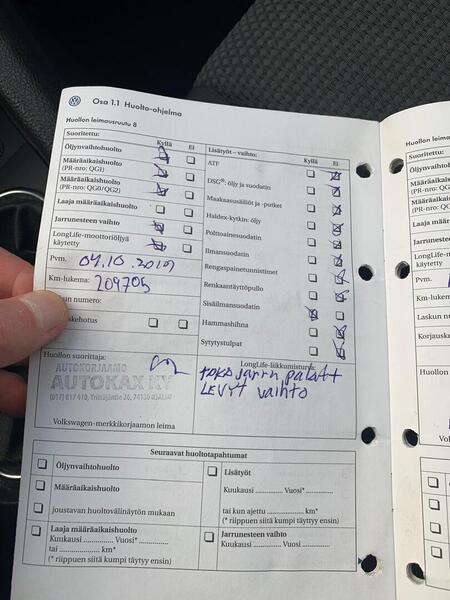 Osa 1.1 Huolto-ohjelma
Huollon leimausruutu 8
Suoritettu:
Kyllä Ei
Öljynvaihtohuolto
Määräaikaishuolto
(PR-nro: QG1)
Määräaikaishuolto
(PR-nro: QG0/QG2)
Laaja määräaikaishuolto
Jarrunesteen vaihto
LongLife-moottoriöljyä
käytetty
Pvm. 04.10.2019
Km-lukema: 209705
kun numero:
skehotus
Lisätyöt – vaihto:
Kyllä Ei
ATF
DSG®: öljy ja suodatin
Maakaasusäiliöt ja -putket
Haldex-kytkin: öljy
Polttoainesuodatin
Ilmansuodatin
Rengaspainetunnistimet
Renkaantäytöpullo
Sisäilmansuodatin
Hammashihna
Sytytystulpat
Huollon suorittaja:
AUTOKORJAAMO
AUTOKAX KY
(017) 817 410, Yrittäjäntie 26, 74130 IISALMI
Volkswagen-merkkikorjaamon leima
LongLife-liikkumisturva:
taka jarru palatt
LEVYT vaihto
Seuraavat huoltotapahtumat
Öljynvaihtohuolto
Määräaikaishuolto
joustavan huoltovälinäytön mukaan
Laaja määräaikaishuolto
Kuukausi .............. Vuosi* ..............
tai .............. km*
(* riippuen siitä kumpi täytyy ensin)
Lisätyöt
Kuukausi .............. Vuosi* ..............
tai kun ajettu .............. km*
(* riippuen siitä kumpi täytyy ensin)
Jarrunesteen vaihto
Kuukausi .............. Vuosi ..............
Huollon leima
Suoritettu:
Öljynvaihtohuolto
Määräaikaishuolto
(PR-nro: QG1)
Määräaikaishuolto
(PR-nro: QG0/
Laaja määräa
Jarrunesteen
LongLife-mo
käytetty
Pvm.
Km-lukema
Laskun nu
Korjauske
Huollon
Volksw